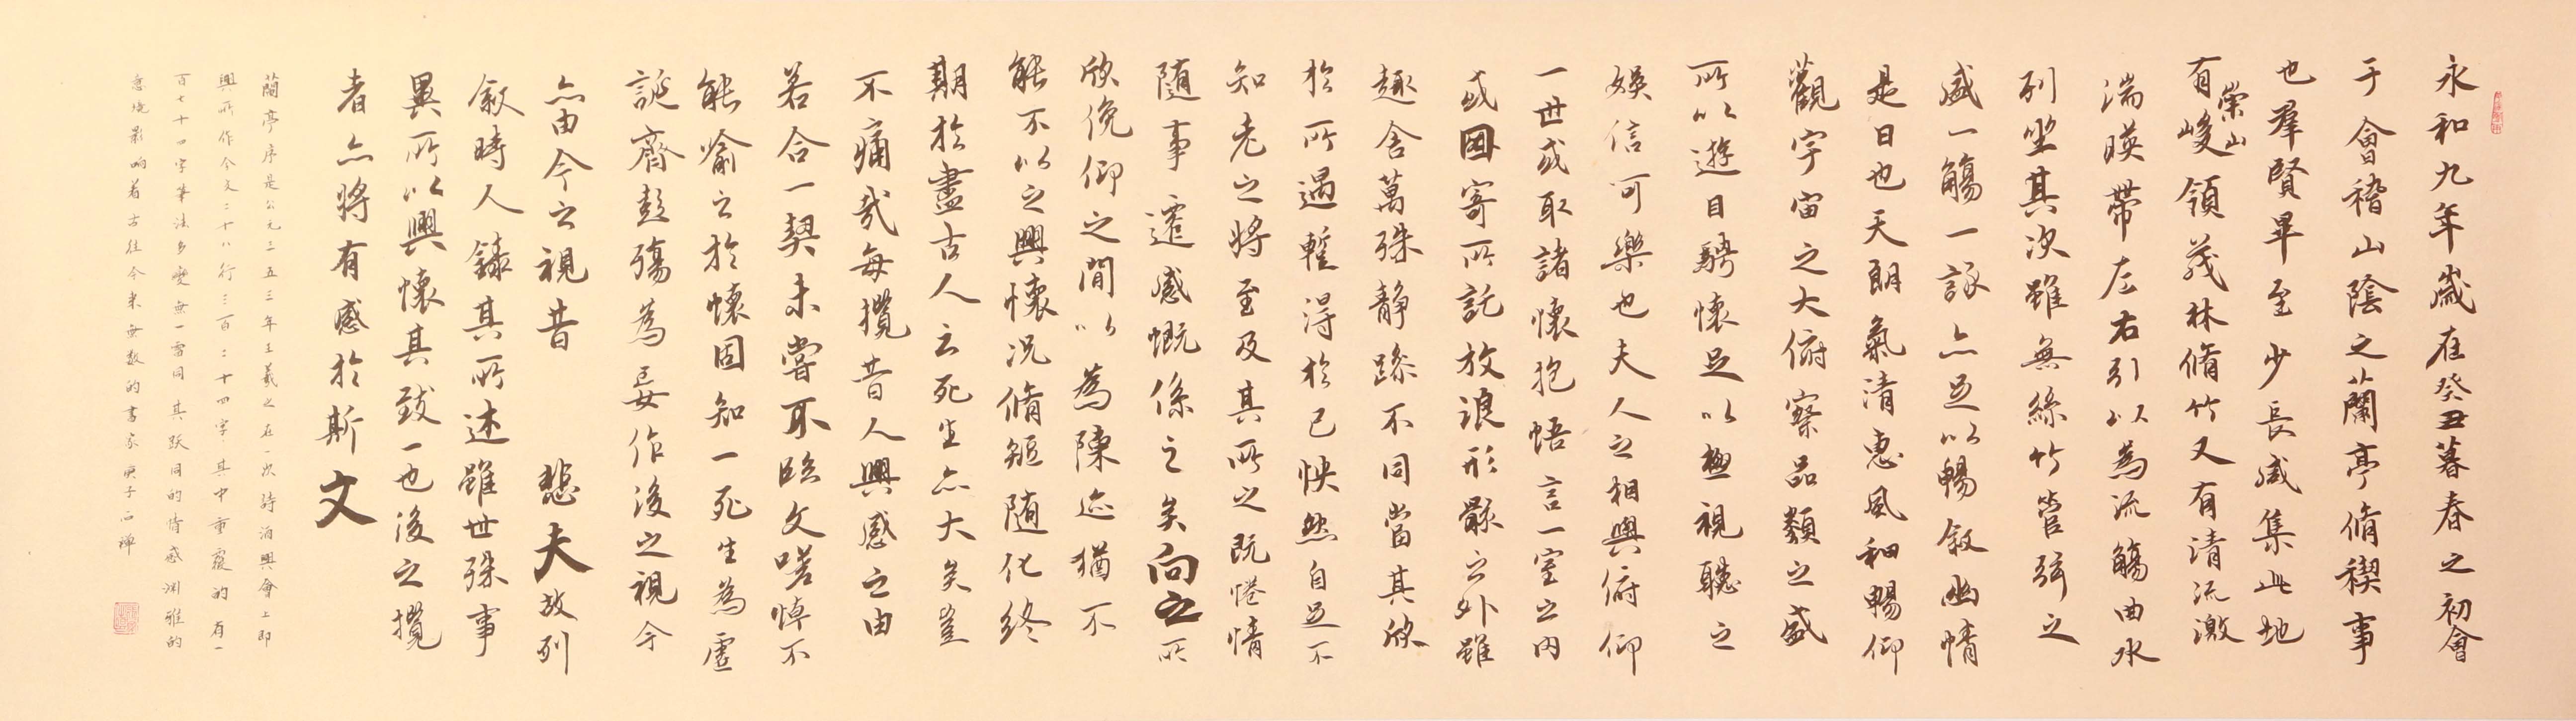 永和九年歲在癸丑暮春之初會
于會稽山陰之蘭亭脩禊事
也羣賢畢至少長咸集此地
有崇山峻領茂林脩竹又有清流激
湍暎帶左右引以為流觴曲水
列坐其次雖無絲竹管弦之
盛一觴一詠亦足以暢敘幽情
是日也天朗氣清惠風和暢仰
觀宇宙之大俯察品類之盛
所以遊目騁懷足以極視聽之
娛信可樂也夫人之相與俯仰
一世或取諸懷抱悟言一室之內
或因寄所託放浪形骸之外雖
趣舍萬殊靜躁不同當其欣
於所遇暫得於己怏然自足不
知老之將至及其所之既惓情
隨事遷感慨係之矣向之所
欣俛仰之閒以為陳迹猶不
能不以之興懷況脩短隨化終
期於盡古人云死生亦大矣豈
不痛哉每攬昔人興感之由
若合一契未嘗不臨文嗟悼不
能喻之於懷固知一死生為虛
誕齊彭殤為妄作後之視今
亦由今之視昔 悲夫故列
敘時人錄其所述雖世殊事
異所以興懷其致一也後之攬
者亦將有感於斯文
蘭亭序是公元三五三年王羲之在一次詩酒興會上即
興所作全文二十八行三百二十四字其中重覆的有一
百七十四字筆法多變無一雷同其同的情感渊雅的
意境影响着古往今来無數的書家庚子